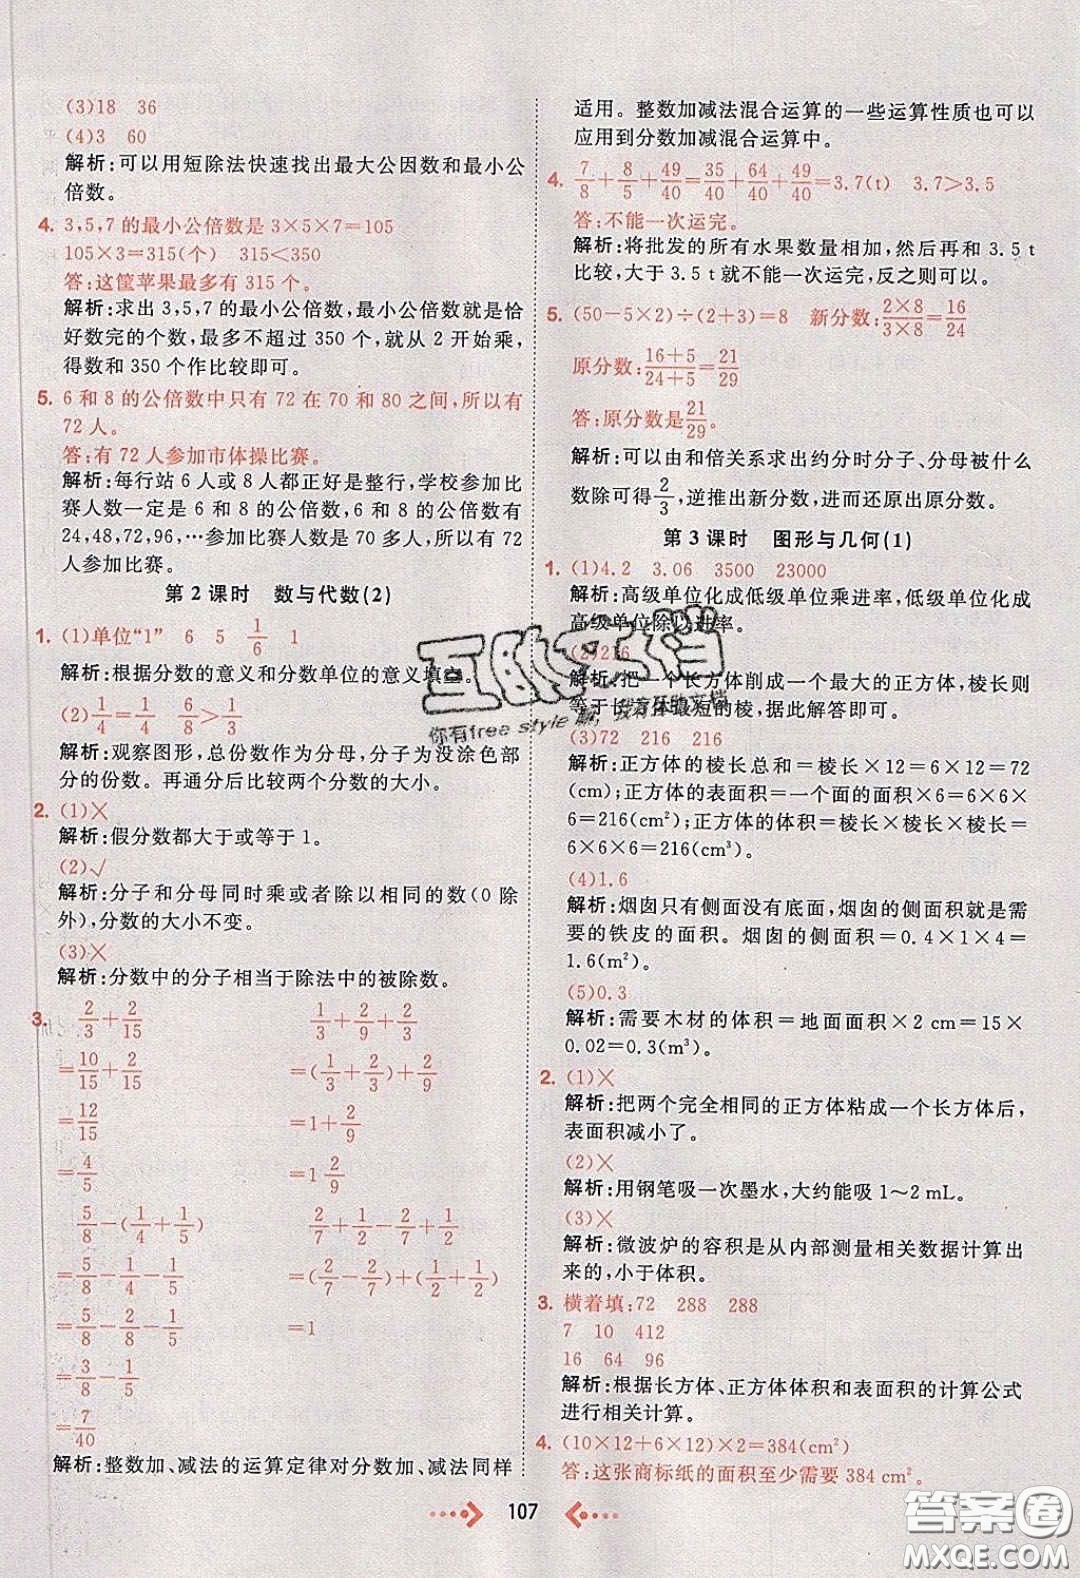 (3)18　36
(4)3　60
解析:可以用短除法快速找出最大公因数和最小公
倍数。
4. 3,5,7 的最小公倍数是 3×5×7=105
105×3=315(个)　315<350
答:这筐苹果最多有 315 个。
解析:求出 3,5,7 的最小公倍数,最小公倍数就是恰
好数完的个数,最多不超过 350 个,就从 2 开始乘,
得数和 350 个作比较即可。
5. 6 和 8 的公倍数中只有 72 在 70 和 80 之间,所以有
72 人。
答:有 72 人参加市体操比赛。
解析:每行站 6 人或 8 人都正好是整行,学校参加比
赛人数一定是 6 和 8 的公倍数,6 和 8 的公倍数有
24,48,72,96,…参加比赛人数是 70 多人,所以有 72
人参加比赛。
第 2 课时　数与代数(2)
1. (1)单位“1”　6　5　1/6　1
解析:根据分数的意义和分数单位的意义填空。
(2)1/4=1/4　6/8>1/3
解析:观察图形,总份数作为分母,分子为没涂色部
分的份数。再通分后比较两个分数的大小。
2. (1)×
解析:假分数都大于或等于 1。
(2)√
解析:分子和分母同时乘或者除以相同的数(0 除
外),分数的大小不变。
(3)×
解析:分数中的分子相当于除法中的被除数。
3. 2/3+2/15　1/3+2/9+2/3
=10/15+2/15　=(1/3+2/3)+2/9
=12/15　=1+2/9
=4/5　=1 2/9
5/8-(1/4+1/5)　2/7+1/2-2/7+1/2
=5/8-1/4-1/5　=(2/7-2/7)+(1/2+1/2)
=5/8-2/8-1/5　=1
=3/8-1/5
=7/40
解析:整数加、减法的运算定律对分数加、减法同样
适用。整数加减法混合运算的一些运算性质也可以
应用到分数加减混合运算中。
4. 7/8+8/5+49/40=35/40+64/40+49/40=3.7(t)　3.7>3.5
答:不能一次运完。
解析:将批发的所有水果数量相加,然后再和 3.5 t
比较,大于 3.5 t 就不能一次运完,反之则可以。
5. (50-5×2)÷(2+3)=8　新分数:2×8/3×8=16/24
原分数:16+5/24+5=21/29
答:原分数是21/29。
解析:可以由和倍关系求出约分时分子、分母被什么
数除可得2/3,逆推出新分数,进而还原出原分数。
第 3 课时　图形与几何(1)
1. (1)4.2　3.06　3500　23000
解析:高级单位化成低级单位乘进率,低级单位化成
高级单位除以进率。
(2)216
解析:把一个长方体削成一个最大的正方体,棱长则
等于长方体最短的棱,据此解答即可。
(3)72　216　216
解析:正方体的棱长总和=棱长×12=6×12=72
(cm);正方体的表面积=一个面的面积×6=6×6×6
=216(cm²);正方体的体积=棱长×棱长×棱长=
6×6×6=216(cm³)。
(4)1.6
解析:烟囱只有侧面没有底面,烟囱的侧面积就是需
要的铁皮的面积。烟囱的侧面积=0.4×1×4=
1.6(m²)。
(5)0.3
解析:需要木材的体积=地面面积×2 cm=15×
0.02=0.3(m³)。
2. (1)×
解析:把两个完全相同的正方体粘成一个长方体后,
表面积减小了。
(2)×
解析:用钢笔吸一次墨水,大约能吸 1～2 mL。
(3)×
解析:微波炉的容积是从内部测量相关数据计算出
来的,小于体积。
3. 横着填:72　288　288
7　10　412
16　64　96
解析:根据长方体、正方体体积和表面积的计算公式
进行相关计算。
4. (10×12+6×12)×2=384(cm²)
答:这张商标纸的面积至少需要 384 cm²。
107
你有free style 嘛,我有互助文档
答案圈
MXQE.COM